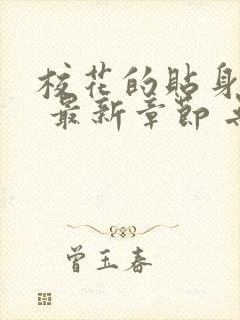 校花的贴身
最新章节
曾玉春